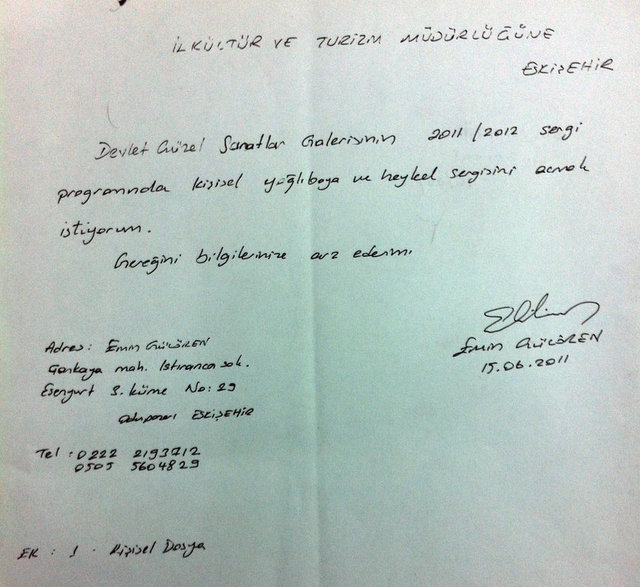 İL KÜLTÜR VE TURİZM MÜDÜRLÜĞÜNE
ESKİŞEHİR
Devlet Güzel Sanatlar Galerisinin 2011/2012 sergi
programında kişisel yağlıboya ve heykel sergisini açmak
istiyorum.
Gereğini bilgilerinize arz ederim.
Emin GÜLÖREN
15.06.2011
Adres: Emin GÜLÖREN
Çankaya mah. Istranca sok.
Esenyurt 3. küme No: 29
Odunpazarı ESKİŞEHİR
Tel : 0222 2193712
0505 5604829
EK : 1 . Kişisel Dosya